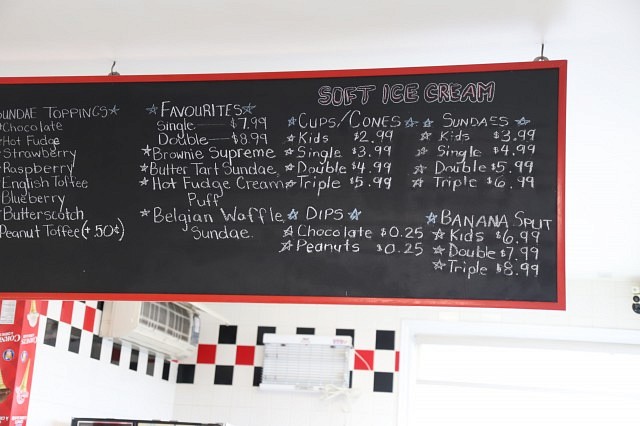 SUNDAE TOPPINGS
Chocolate
Hot Fudge
Strawberry
Raspberry
English Toffee
Blueberry
Butterscotch
Peanut Toffee (+.50¢)
FAVOURITES
Single $7.99
Double $8.99
Brownie Supreme
Butter Tart Sundae
Hot Fudge Cream
Puff
Belgian Waffle
Sundae.
SOFT ICE CREAM
CUPS/CONES
Kids $2.99
Single $3.99
Double $4.99
Triple $5.99
DIPS
Chocolate $0.25
Peanuts $0.25
SUNDAES
Kids $3.99
Single $4.99
Double $5.99
Triple $6.99
BANANA SPLIT
Kids $6.99
Double $7.99
Triple $8.99